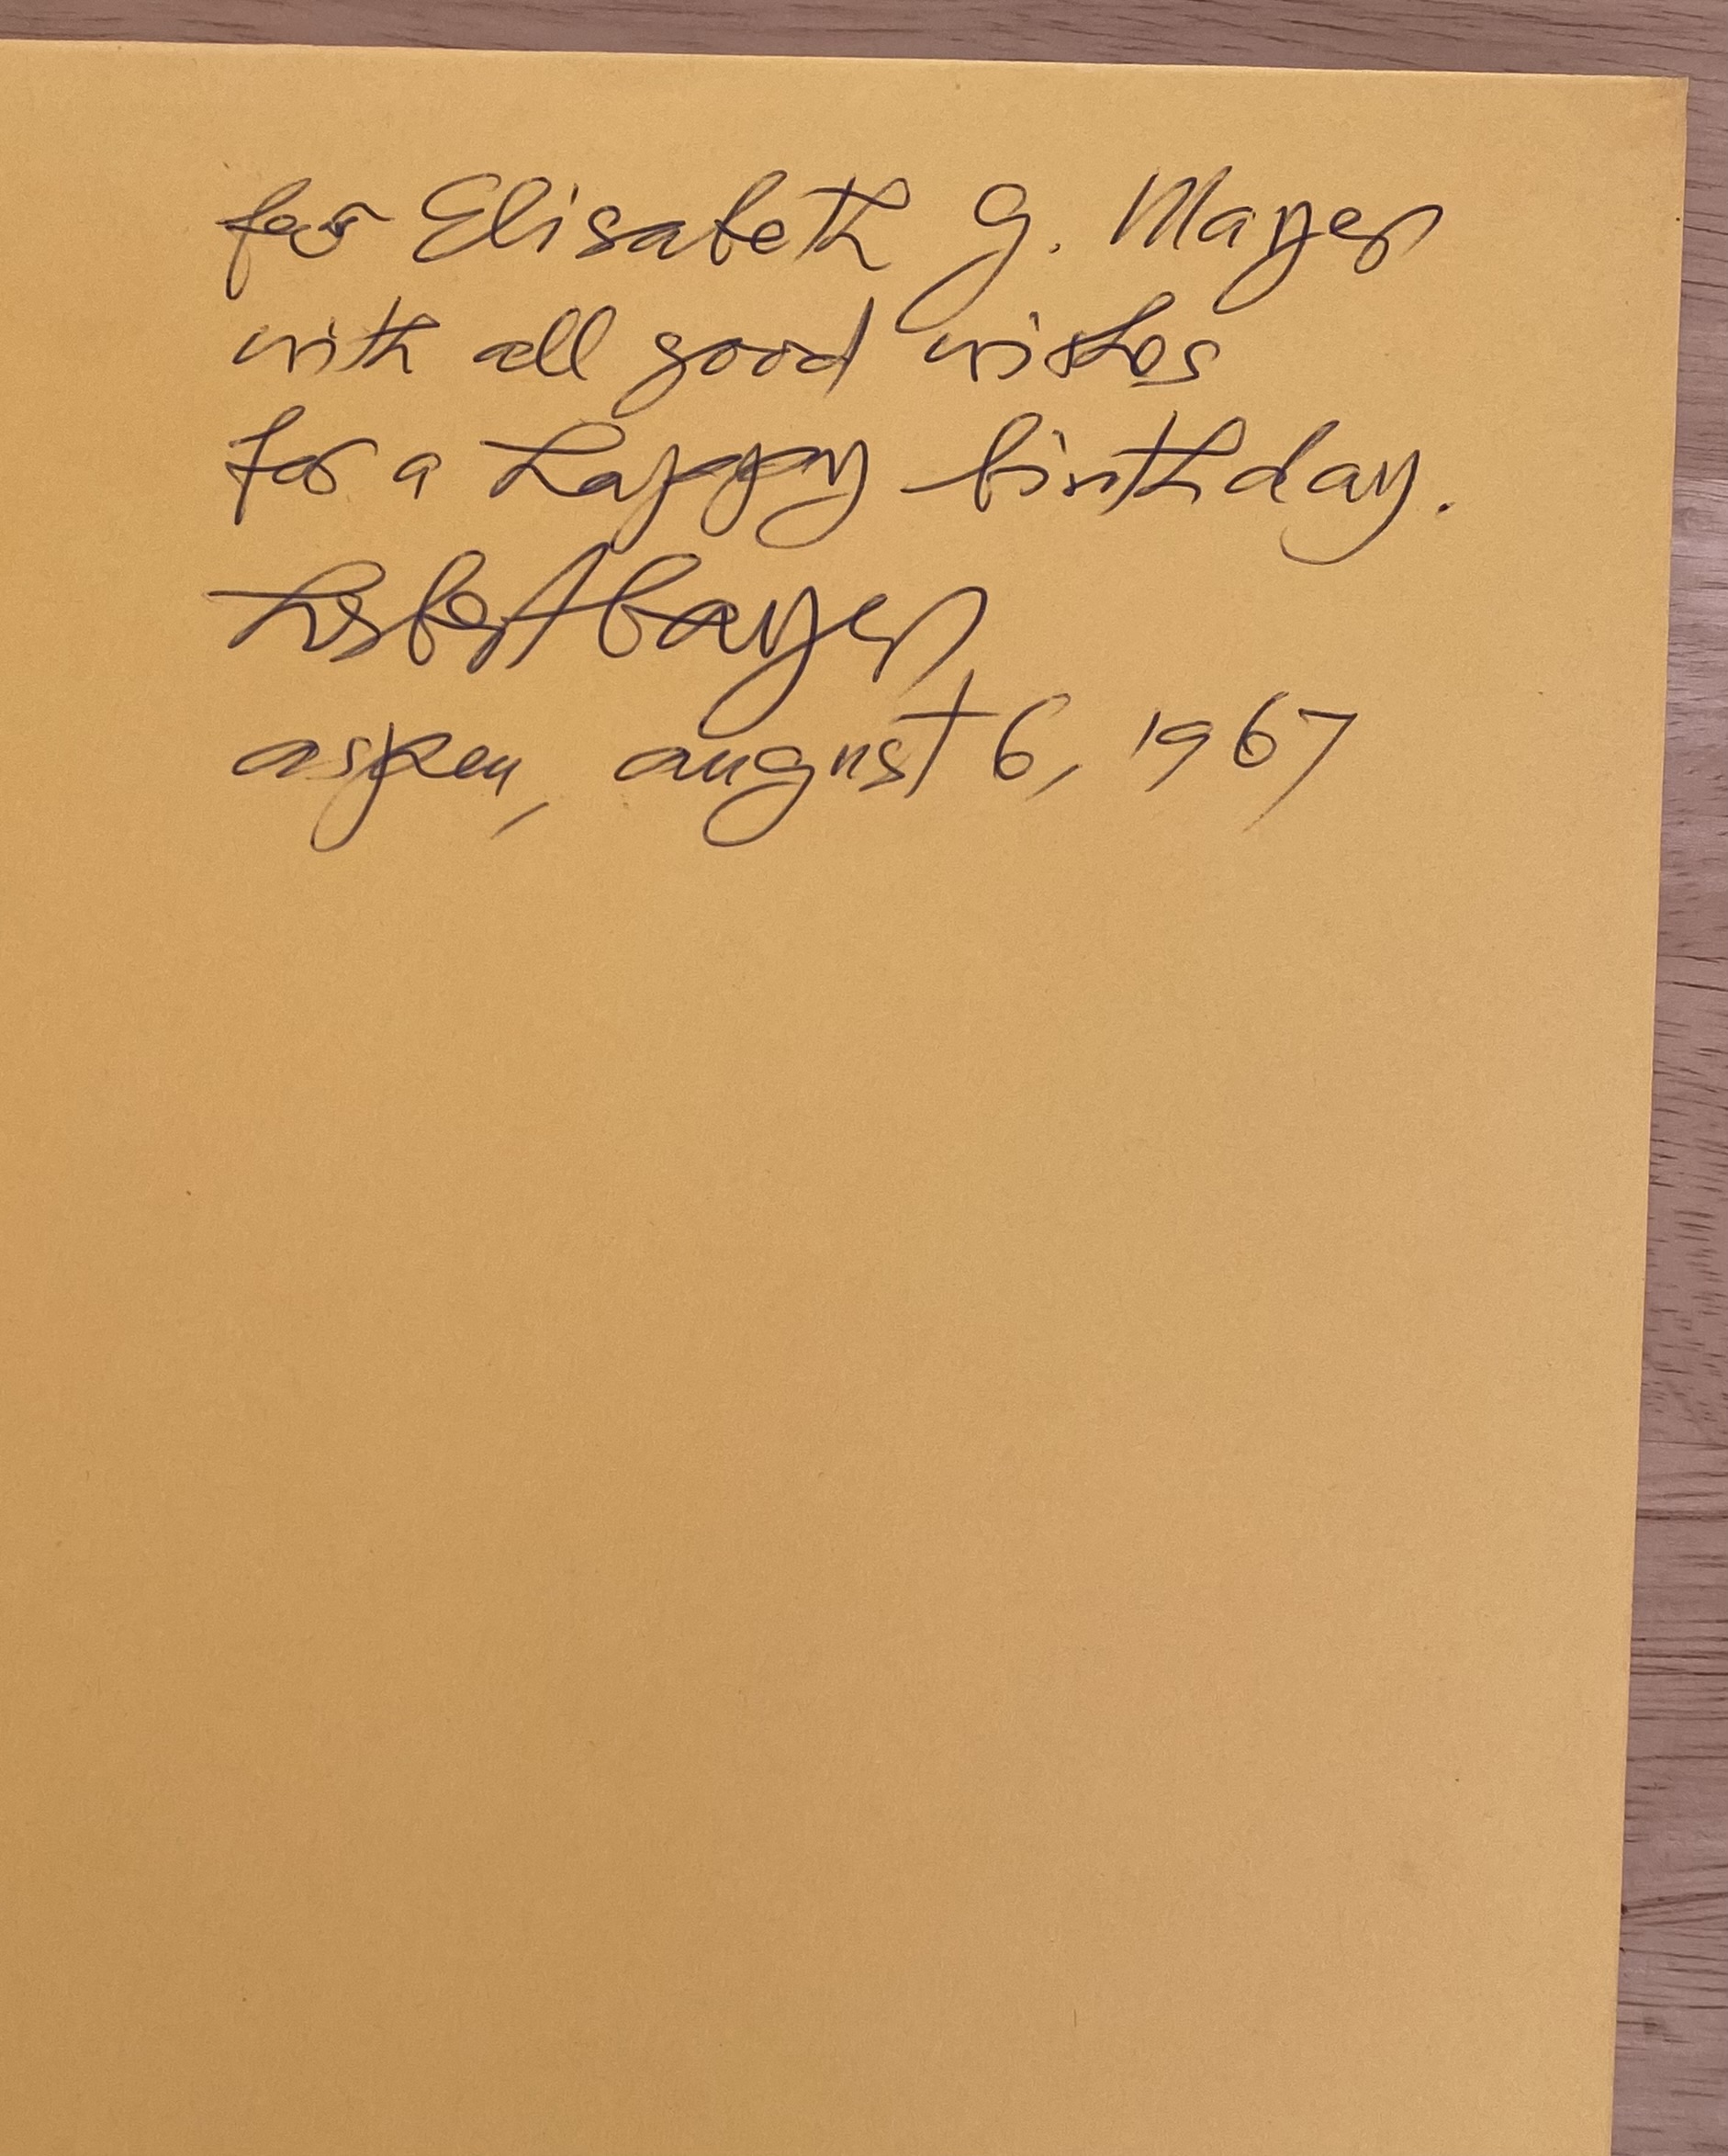 for Elisabeth G. Mayer
with all good wishes
for a happy birthday.
herbert bayer
aspen, august 6, 1967